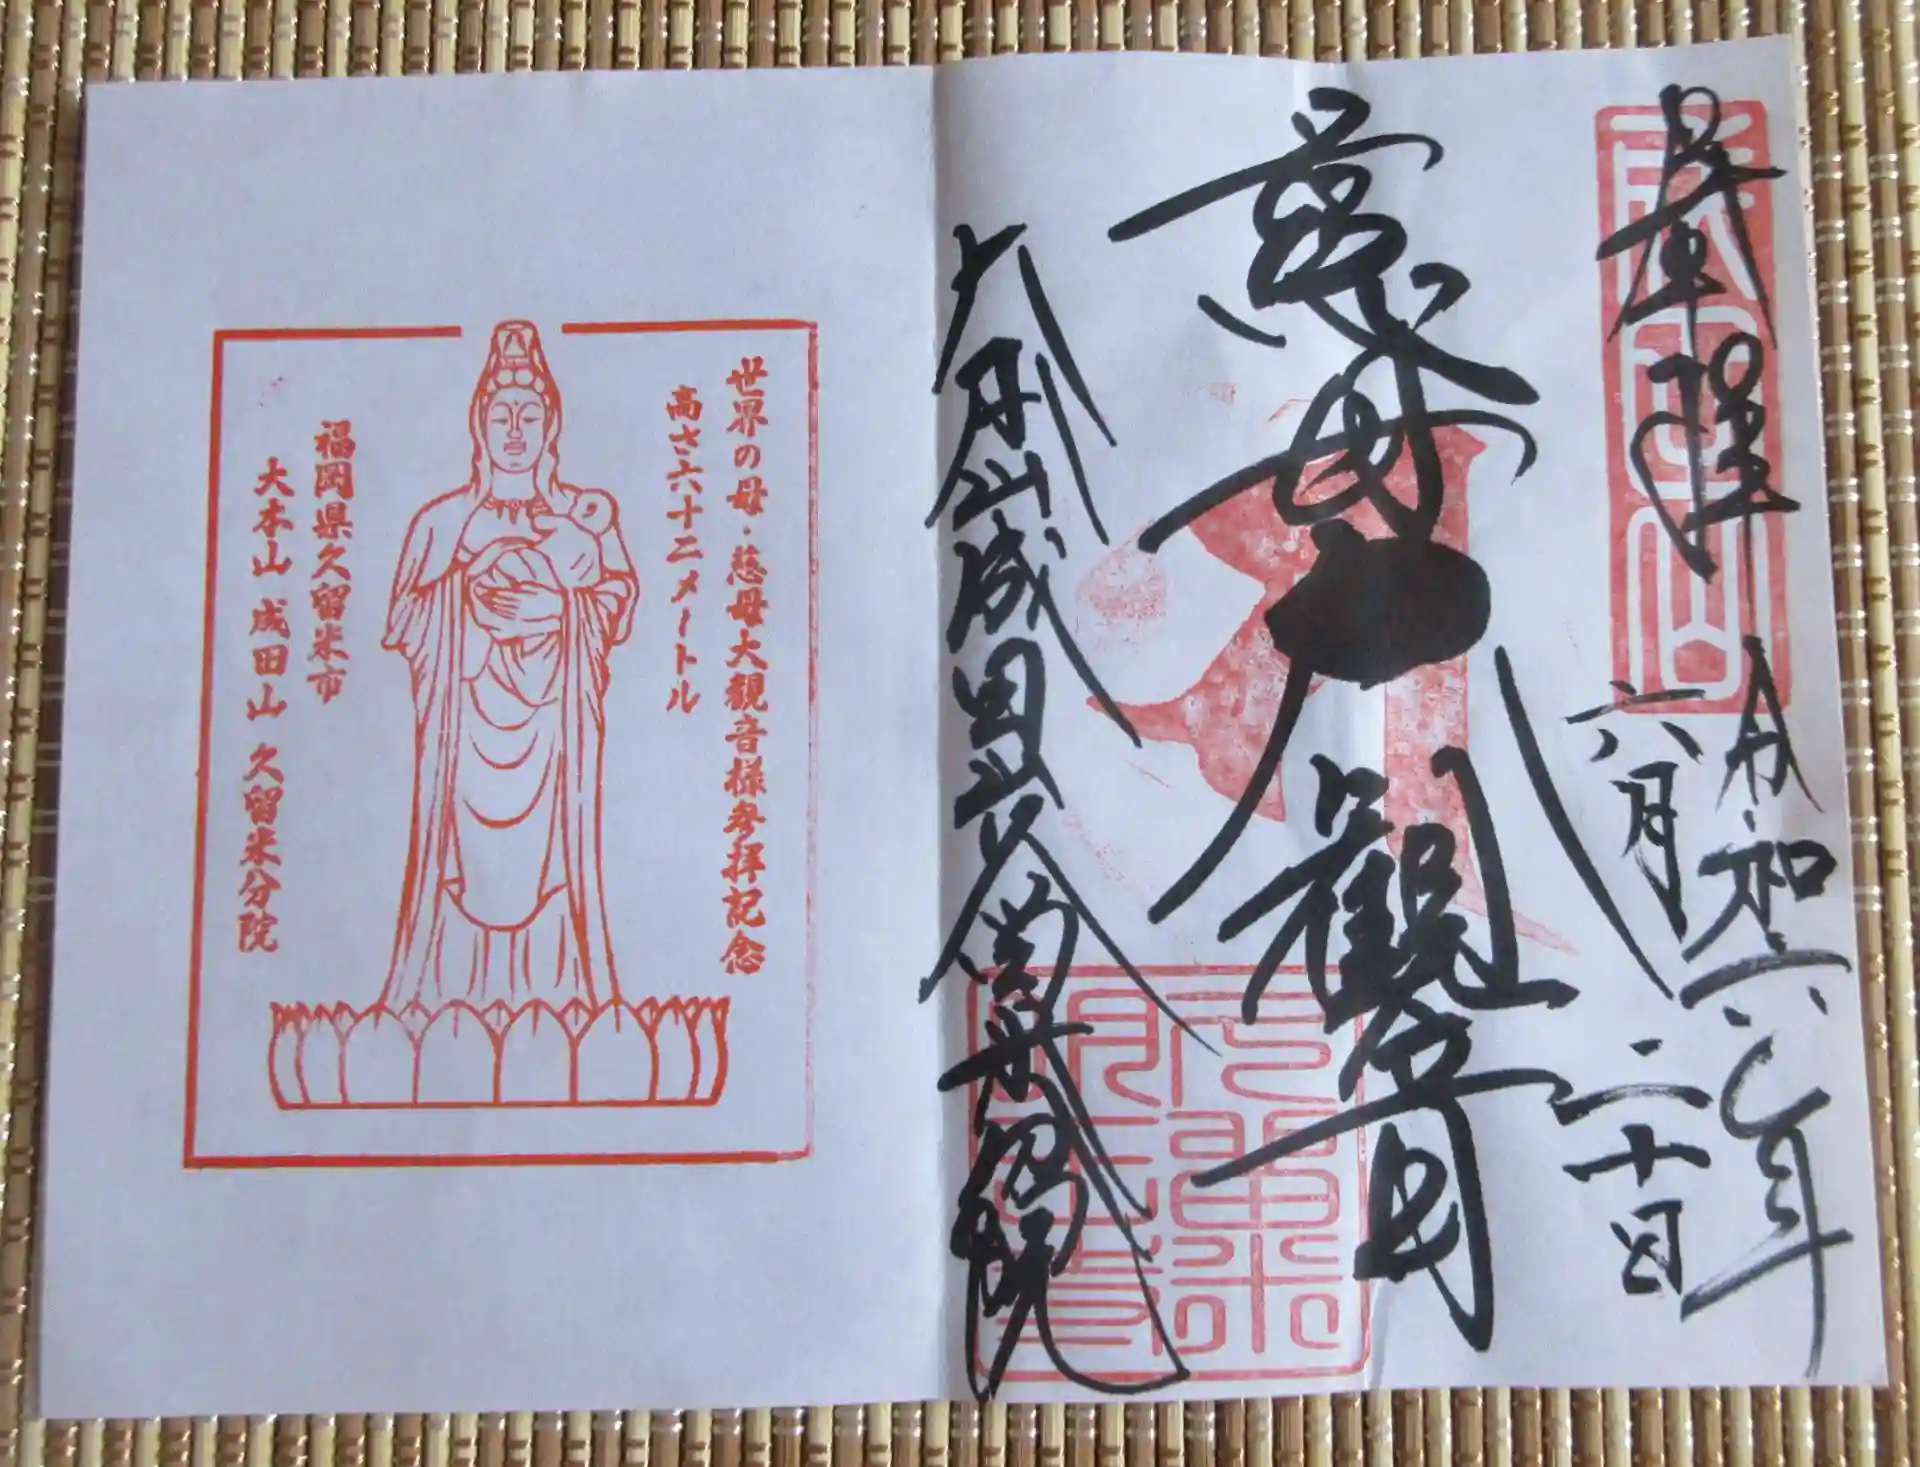 奉拝
令和六年
六月二十日
慈母観音
大本山成田山久留米分院
成田山
世界の母・慈母大観音様参拝記念
高さ六十二メートル
福岡県久留米市
大本山 成田山 久留米分院